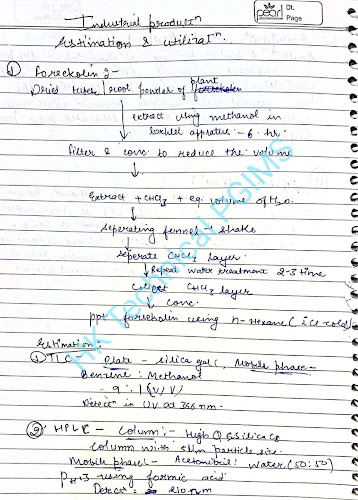 Industrial productⁿ
pearl
Dt.
Page
Estimation & utilizatⁿ.
① Foreckolin :-
Dried tuber / root powder of plant
extract using methanol in
Soxhlet appratus - 6 hr.
filter & conc to reduce the volume
Extract + CHCl3 + eq. volume of H2O
seperating funnel - shake
seperate CHCl3 layer
Repeat water treatment 2-3 time
Collect CHCl3 layer
conc.
ppt forseholin using n-Hexane (ice-cold)
Estimation.
① TLC Plate - silica gel G, Mobile phase -
Benzene : Methanol
9 : 1 (V/V)
Detecⁿ in UV at 366 nm.
② HPLC - Column :- High Q
column with 5um particle size.
Mobile phase :- Acetonitrile : water (50:50)
PH=3 using formic acid
Detecⁿ = 210 nm
HK Technical PGIMS